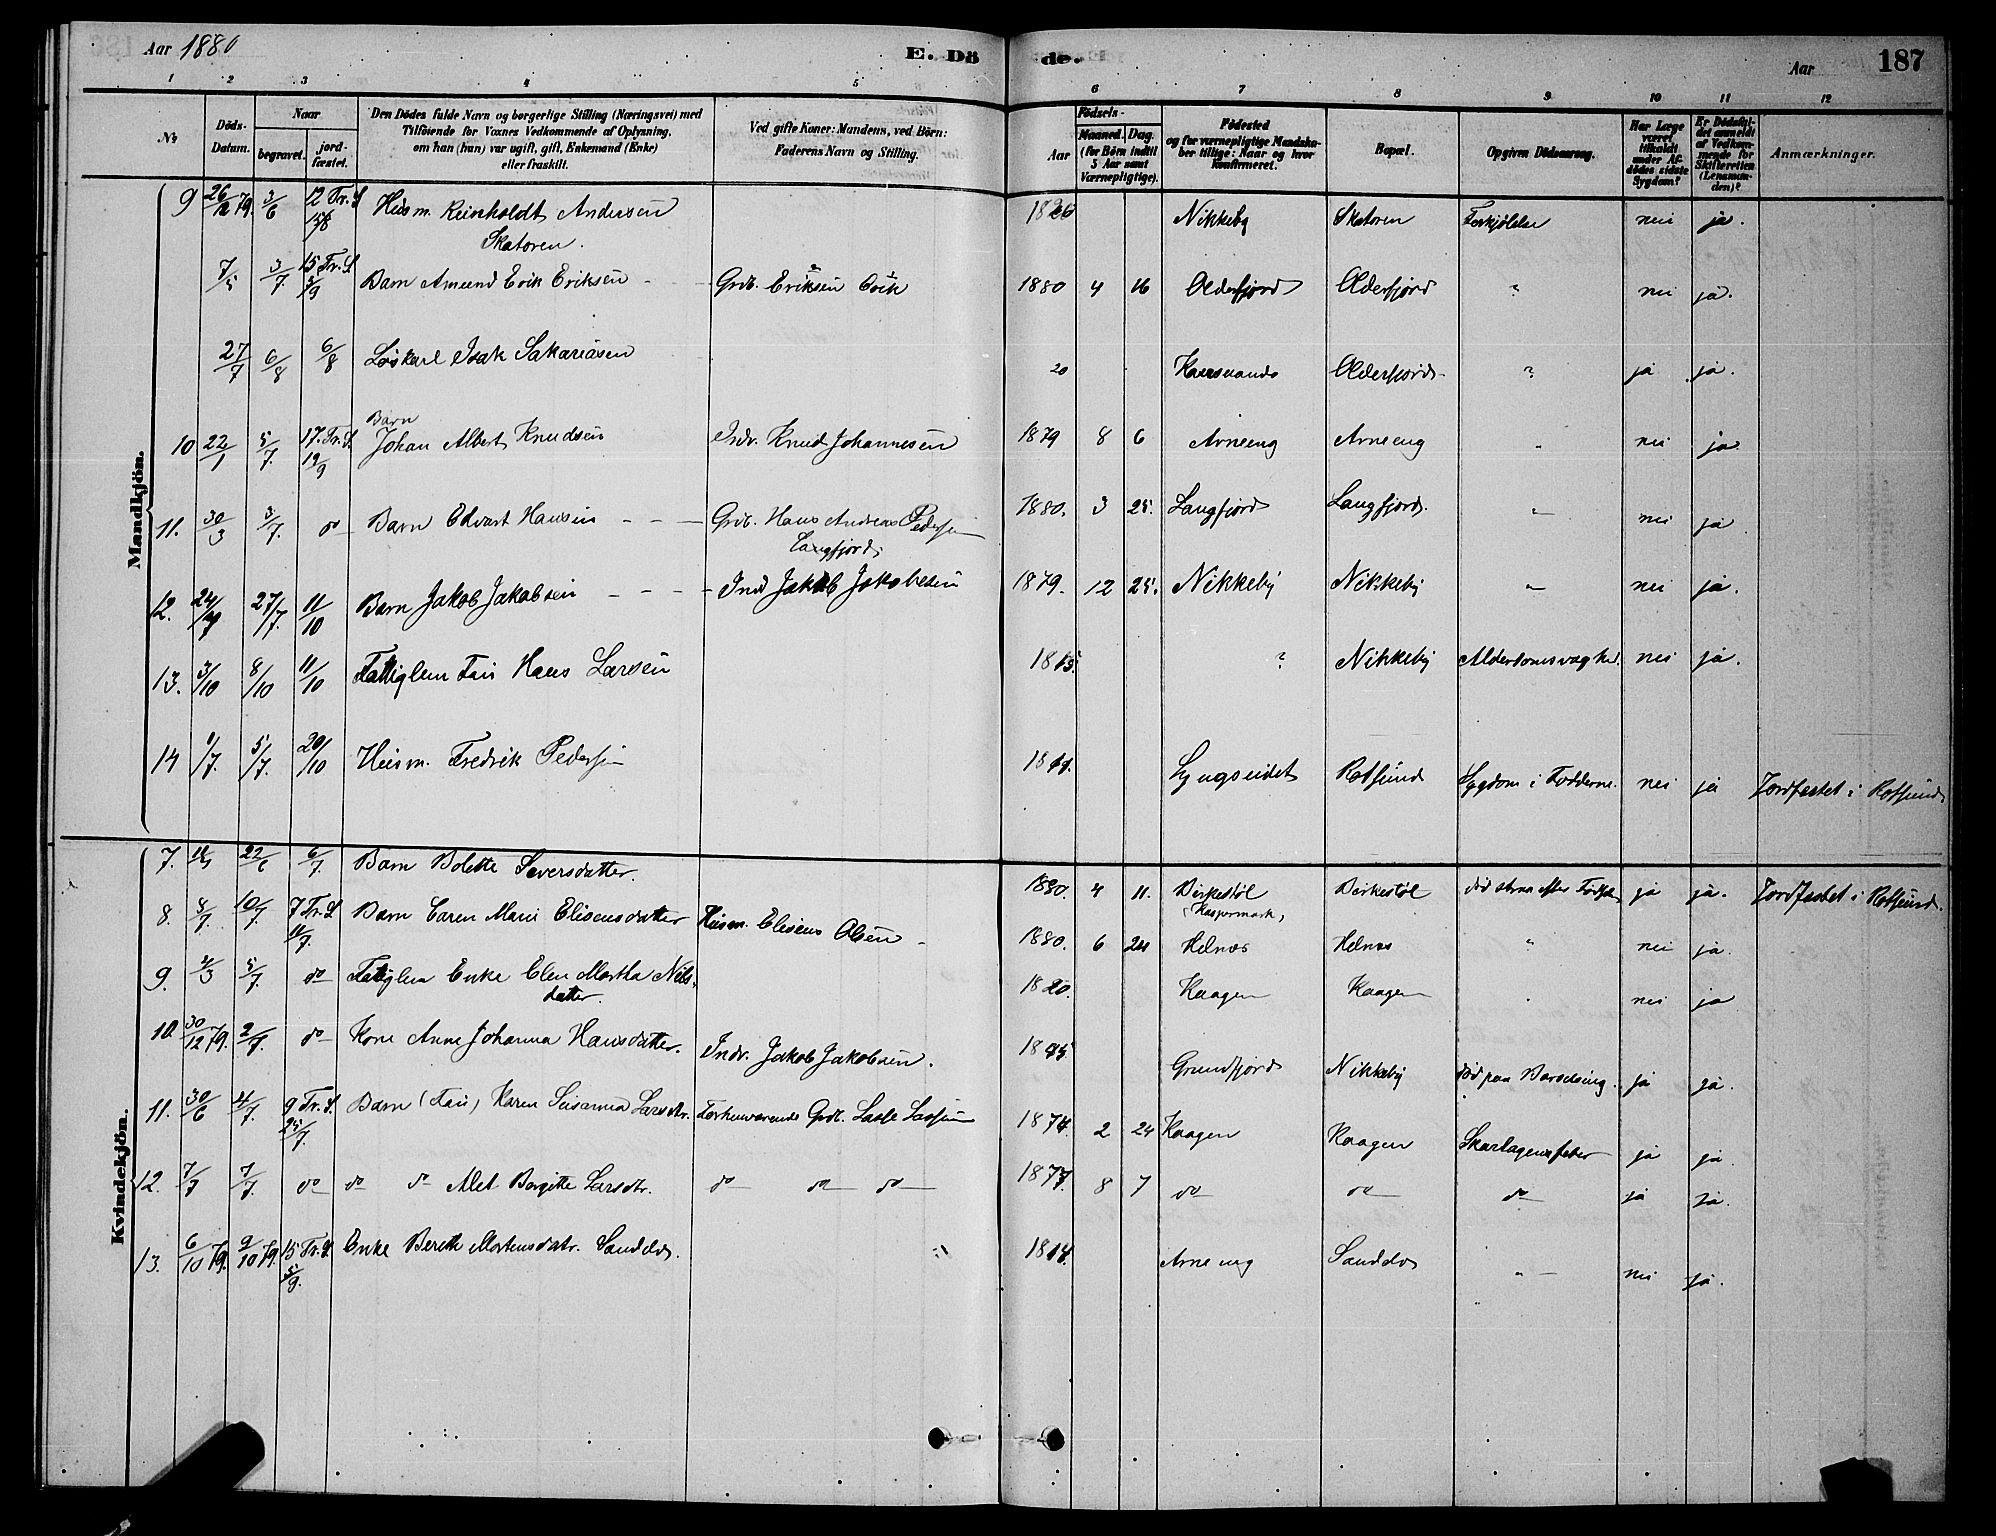 Aar 1880
E. Dö de.
Aar
187
1 2 3 4 5 6 7 8 9 10 11 12
No
Döds-Datum.
Naar
begravet.
jord-fæstet.
Den Dödes fulde Navn og borgerlige Stilling (Næringsvei) med
Tilföiende for Voxnes Vedkommende af Oplysning,
om han (hun) var ugift, gift, Enkemand (Enke)
eller fraskilt.
Ved gifte Koner: Mandens, ved Börn:
Faderens Navn og Stilling.
Födsels-
Aar
Maaned. Dag.
(for Börn indtil
5 Aar samt
Værnepligtige).
Födested
og for værnepligtige Mandska-
ber tillige: Naar og hvor
konfirmeret.
Bopæl.
Opgiven Dödsaarsag.
Har Læge
været
tilkaldt
under Af-
dödes sidste
Sygdom?
Er Dödsfal-
det anmeldt
af Vedkom-
mende for
Skifteretten
(Lensman-
den)?
Anmærkninger.
Mandkjön.
9 26/12 79. 3/6 12 Tr. S. Husm. Reinholdt Andersen 1826 Nikkeby Skatoren Forkjølelse nei ja.
Skatoren.
7/5 3/7. 15 Tr. S. 5/9 Barn Amund Erik Eriksen Grdb. Eriksen 1880 4 16 Olderfjord Olderfjord ? nei ja.
27/7 6/8 6/8 Løskarl Isak Sakariasen 20 Olderfjord ? ja ja.
Barn
10 22/1 5/7. 17. Tr. S. 19/9 Johan Albert Knudsen Indr. Knud Johannesen 1879 8 6 Arneeng Arneeng " nei ja.
11. 30/3 3/7. do Barn Edvart Hansen Grdb. Hans Andreas Pedersen 1880. 3 25. Langfjord Langfjord. " nei ja
Langfjord
12. 24/7 27/7. 11/10 Barn Jakob Jakobsen Ind Jakob Jakobsen 1879. 12 25. Nikkeby Nikkeby " nei ja.
13. 3/10 8/10 11/10 Fattiglem Hans Larsen 1815 ? Nikkeby Alderdomsvaghed. nei ja.
14 1/7. 5/7. 20/10 Husm. Fredrik Pedersen 1811. Lyngseidet Rotsund Sygdom i Fødderne. nei ja Jordfæstet i Rotsund
Kvindekjön.
7. 22/6 6/7. Barn Bolette Seversdatter. 1880. 4 11. Birkestøl Birkestøl død strax efter Fødselen ja ja. Jordfæstet i Rotsund.
8. 8/7. 10/7. 7 Tr. S. 11/7. Barn Caren Marie Eliseusdatter Husm. Eliseus Olsen 1880. 6 24 Helnes Helnes " nei ja.
9. 4/3 5/7. do Fattiglem Enke Elen Martha Nils- 1820. Kaagen Kaagen nei ja
datter.
10. 30/12 79. 2/7. do Kone Anne Johanna Hansdatter. Indr. Jakob Jakobsen. 1845 Grundfjord Nikkeby død paa Barselseng. ja ja.
11. 30/6 4/7. 9 Tr. S. 25/7. Barn Karen Susanna Larsdtr. Forhenværende Grdb. 1874. 2 24 Kaagen Kaagen Skarlagensfeber ja ja.
12. 7/7 7/7. do do do Alet Bergitte Larsdtr. do do do 1877. 8 7 do do do ja ja.
13. 6/10 79. 9/10 79. 15 Tr. S. 5/9. Enke Berethe Mortensdatr. 1814. Arneeng nei ja.